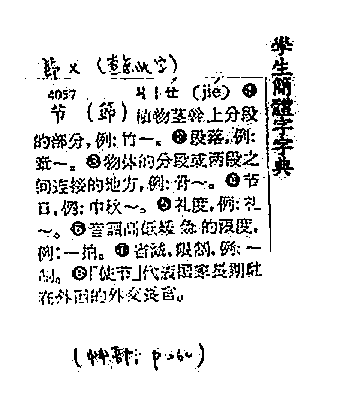 學生簡體字字典
4057 ㄐㄧㄝ (jié) ❶
节 (節) 植物莖幹上分段
的部分,例:竹~。❷段落,例:
~。❸物体的分段或两段之
间连接的地方,例:骨~。❹节
日,例:中秋~。❺礼度,例:礼
~。❻音調高低緩急的限度,
例:~拍。❼省減,限制,例:~
制。❽「使节」代表国家長期駐
在外国的外交長官。